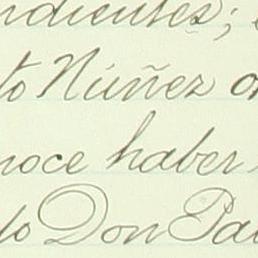 ndientes;
to Núñez o
noce haber
do Don Pa